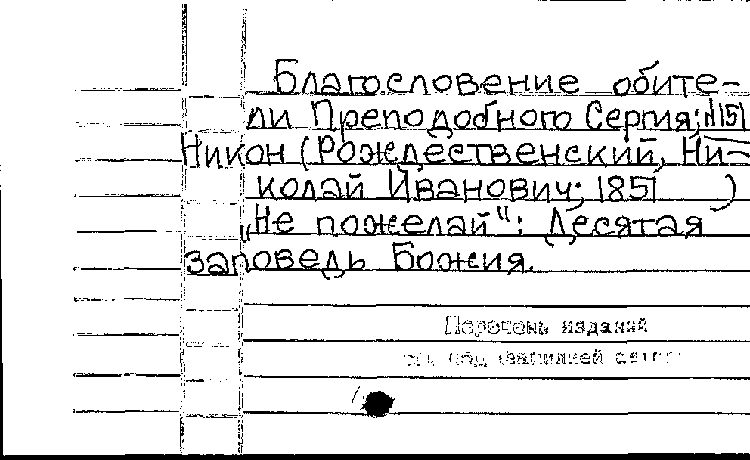 Благословение обите-
ли Преподобного Сергия; №151
Никон (Рождественский, Ни-
колай Иванович; 1851 )
„Не пожелай": Десятая
заповедь Божия.
Перечень изданий
под